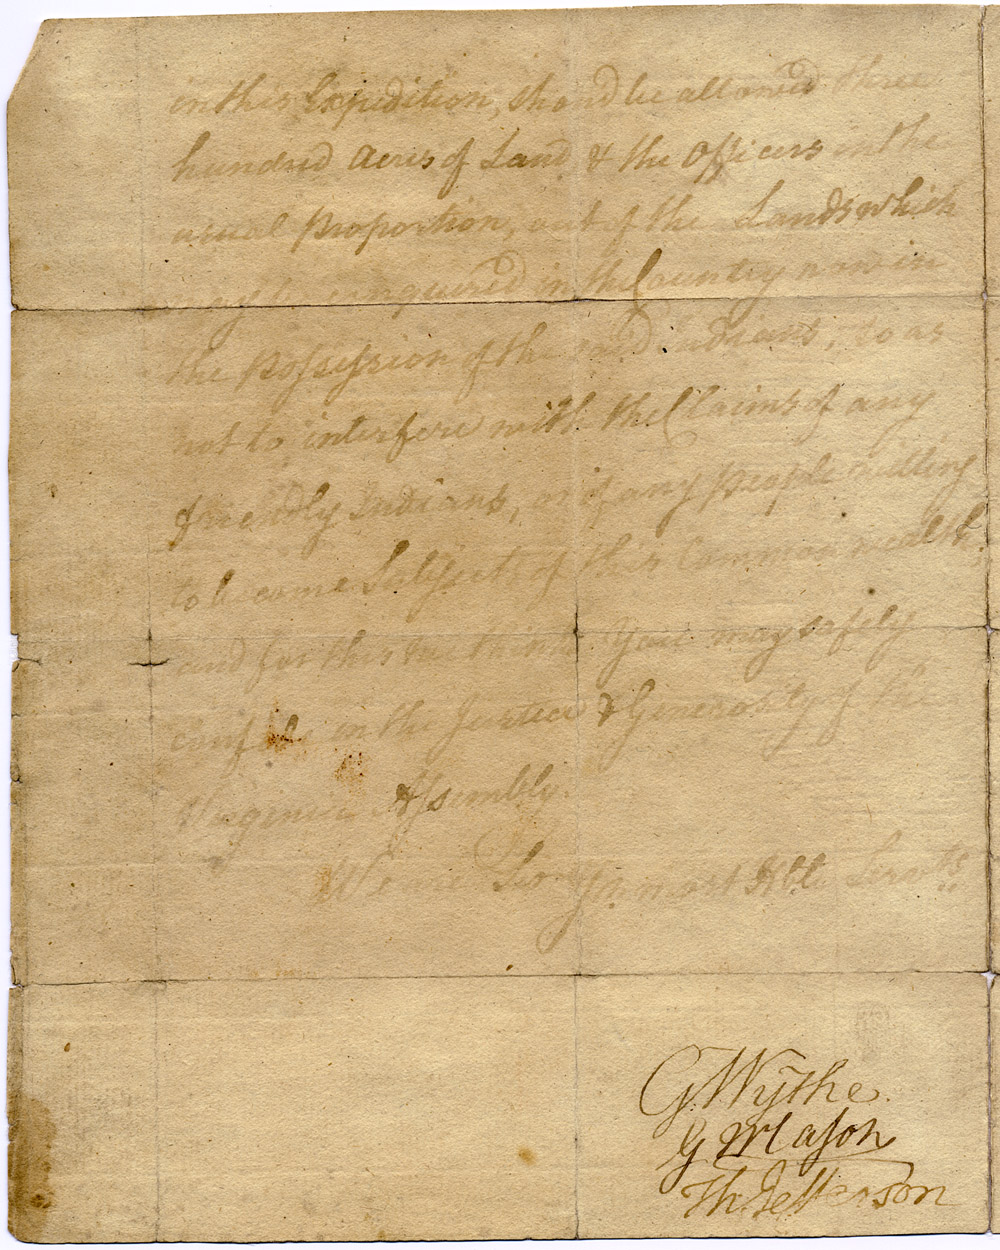 in this Expedition, shoud be allowed three
hundred Acres of Land, & the Officers in the
usual Proportion, out of the Lands which
may be conquered in the Country now in
the Possession of the said Indians; so as
not to interfere with the Claims of any
friendly Indians, or of any People willing
to become Subjects of this Common-wealth;
and for this we think You may safely
confide in the Justice & Generosity of the
Virginia Assembly.
We are Sir Yr. most Hble Servts.
G Wythe.
G Mason
Th: Jefferson